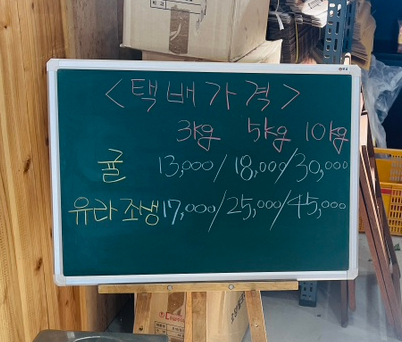 <택배가격>
3kg 5kg 10kg
귤 13,000/18,000/30,000
유라조생 17,000/25,000/45,000